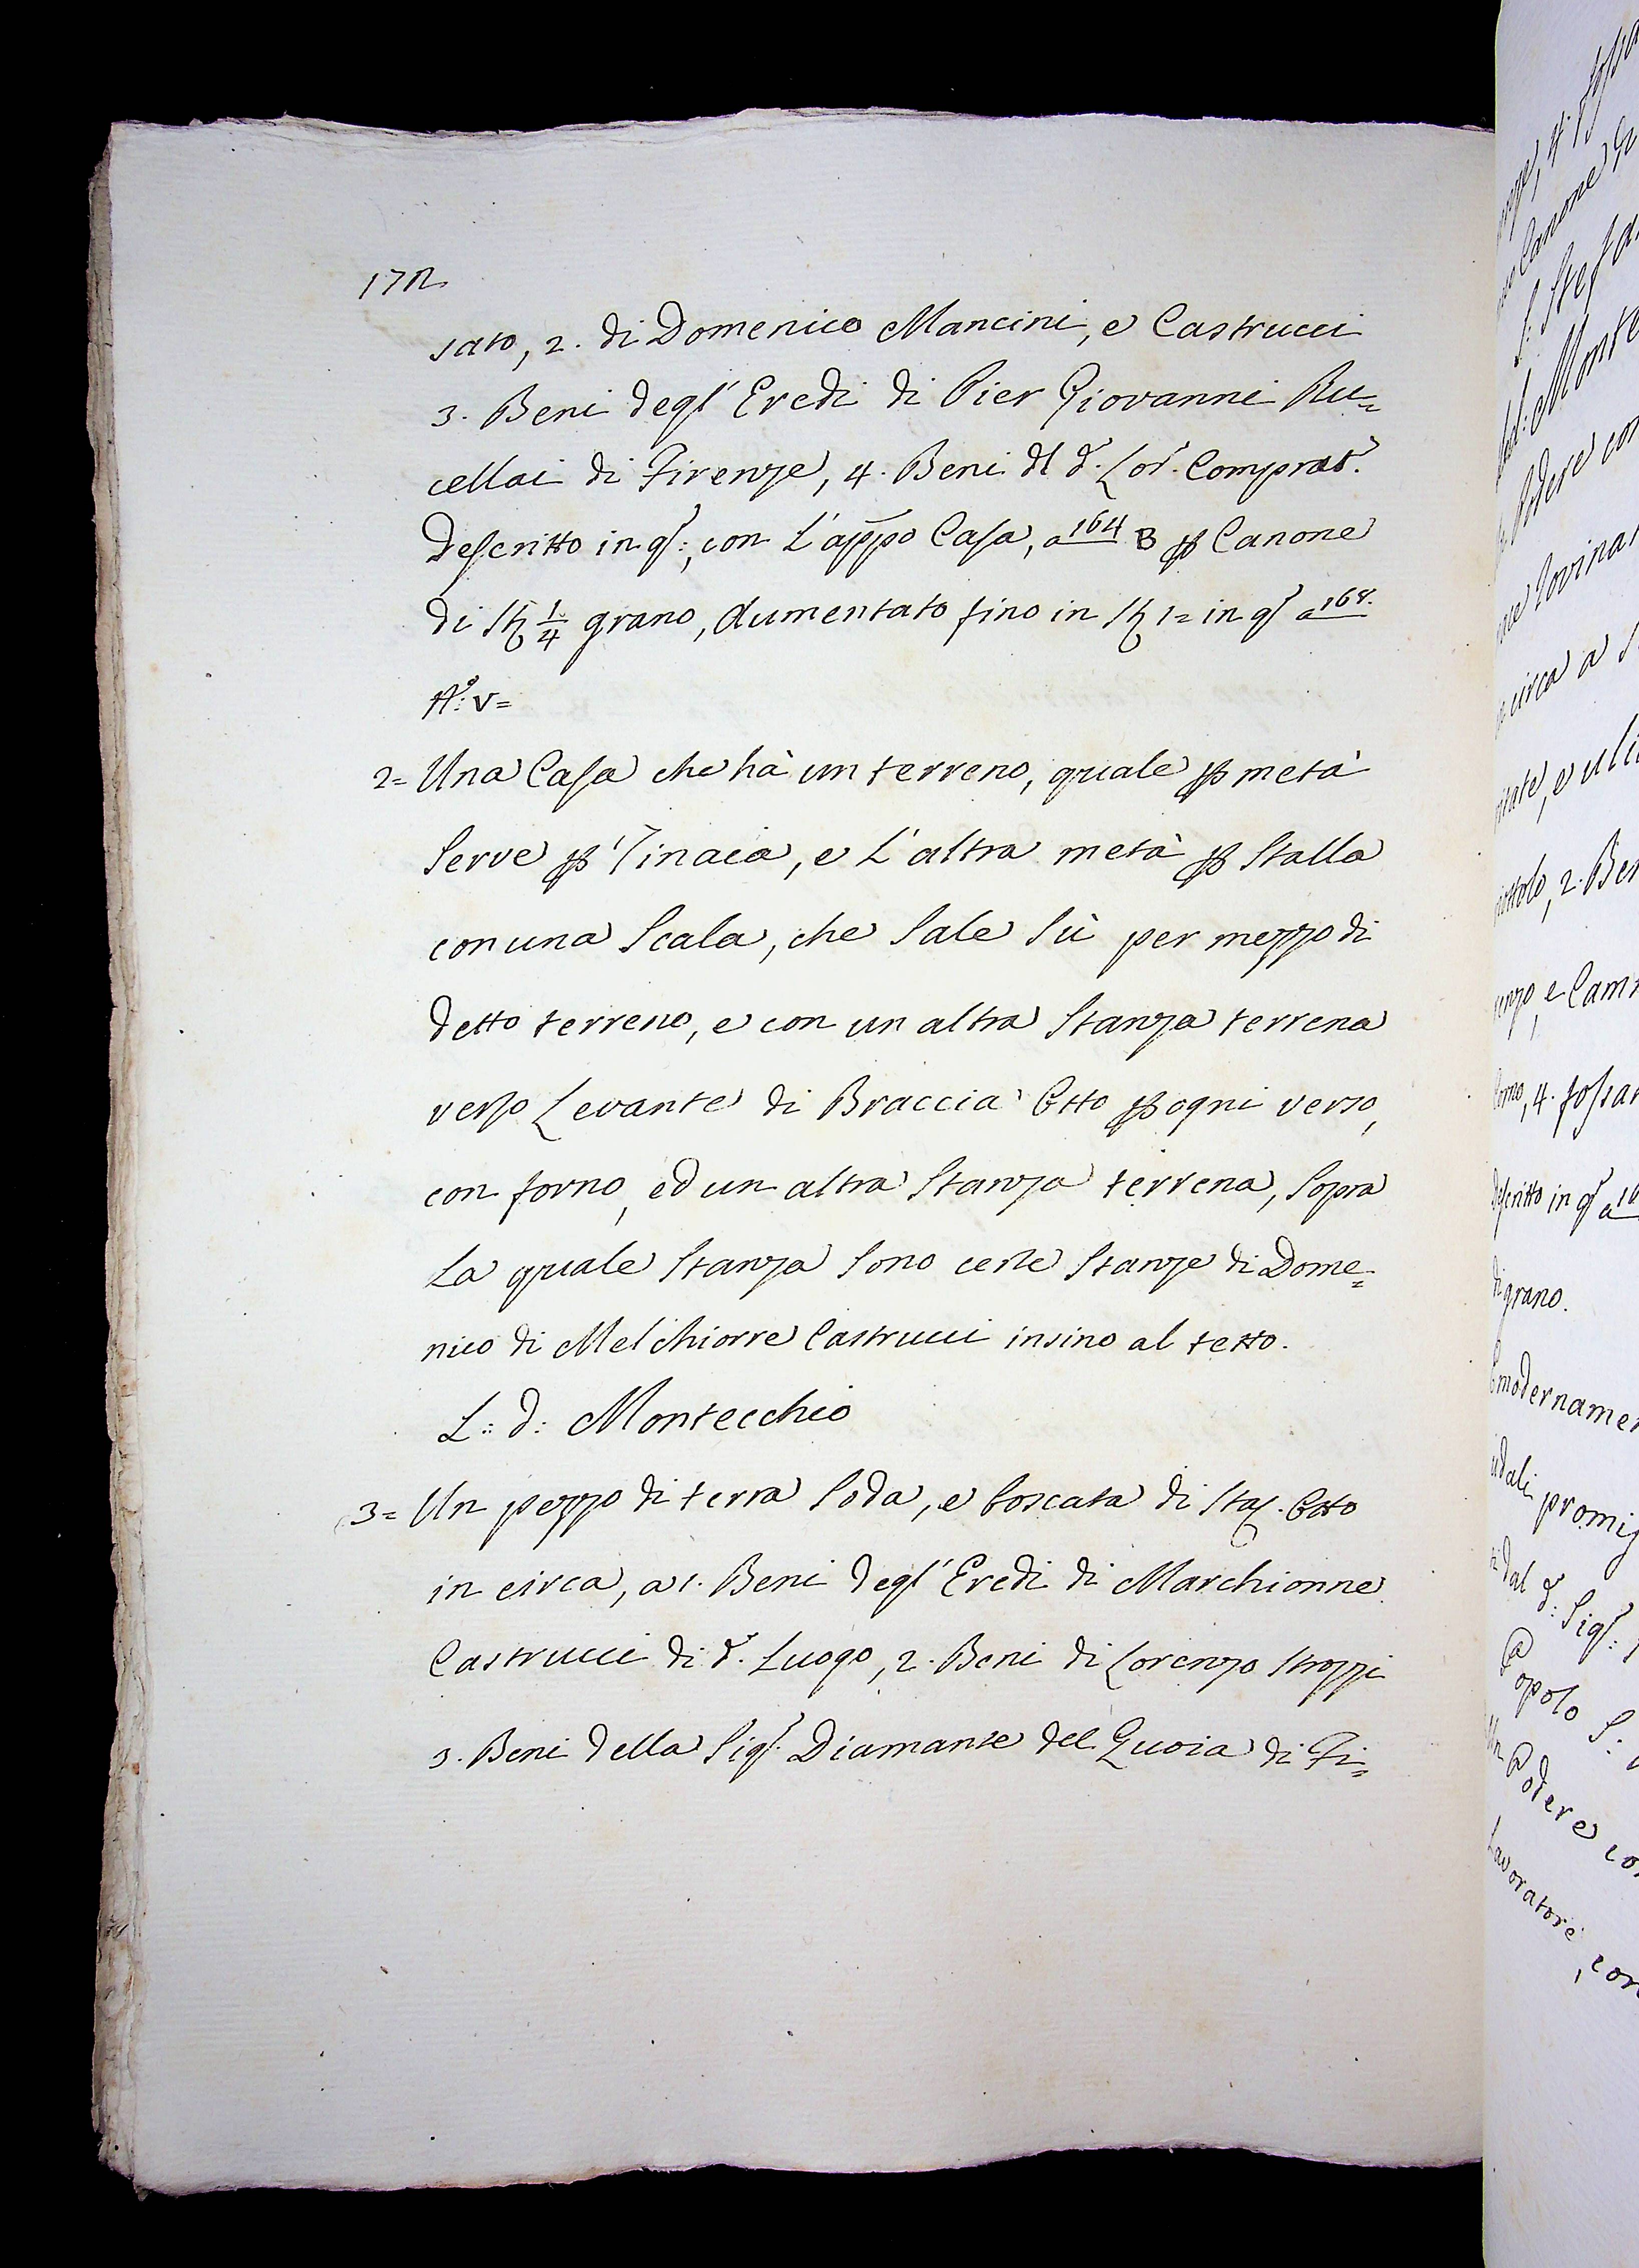 172
sato, 2. di Domenico Mancini, e Castrucci
3. Beni degl' Eredi di Pier Giovanni Ru=
cellai di Firenze, 4. Beni dl d.o Lor.o Comprat.e
descritto in q.o; con l'appo Casa, a 164 B per Canone
di St. 1/4 grano, aumentato fino in St. 1= in q.o a 168.
N.o: V=
2= Una Casa che hà un terreno, quale per metà
serve per Tinaia, e l'altra metà per stalla
con una scala, che sale sù per mezzo di
detto terreno, e con un altra stanza terrena
verso Levante di Braccia Otto per ogni verso,
con forno, ed un altra stanza terrena, sopra
la quale stanza sono certe stanze di Dome=
nico di Melchiorre Castrucci insino al tetto.
L: d: Montecchio
3= Un pezzo di terra soda, e boscata di sta. Otto
in circa, a 1. Beni degl' Eredi di Marchionne
Castrucci di d.o Luogo, 2. Beni di Lorenzo Strozzi
3. Beni della Sig.a Diamante del Quoia di Fi=
Canone
S: Stefa
Monte
Podere con
circa a
2. Ben
e Cam
4. fossat
descritto in q.o a
di grano.
E modernamen
promis
dal d.o: Sig.
Popolo S:
Un Podere co
Lavoratore, con